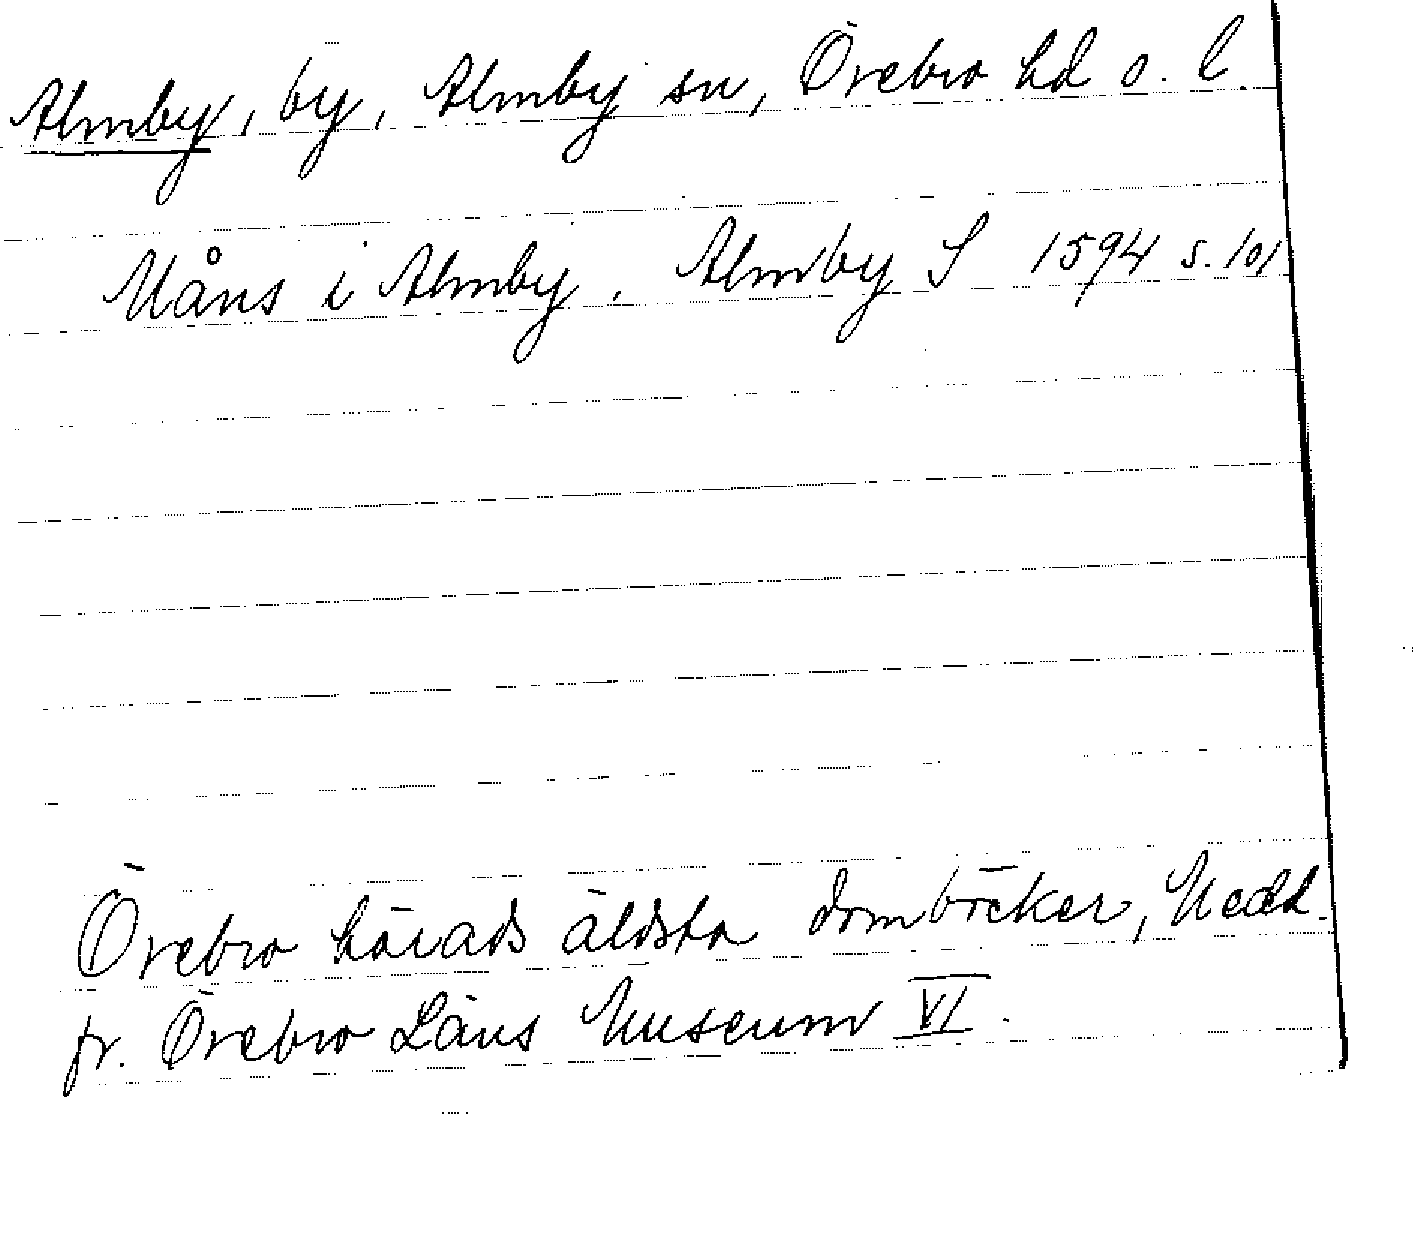 Almby, by, Almby sn, Örebro hd o. l.
Måns i Almby, Almby S 1594 s. 101
Örebro härads äldsta domböcker, Medd.
fr. Örebro Läns Museum VI.